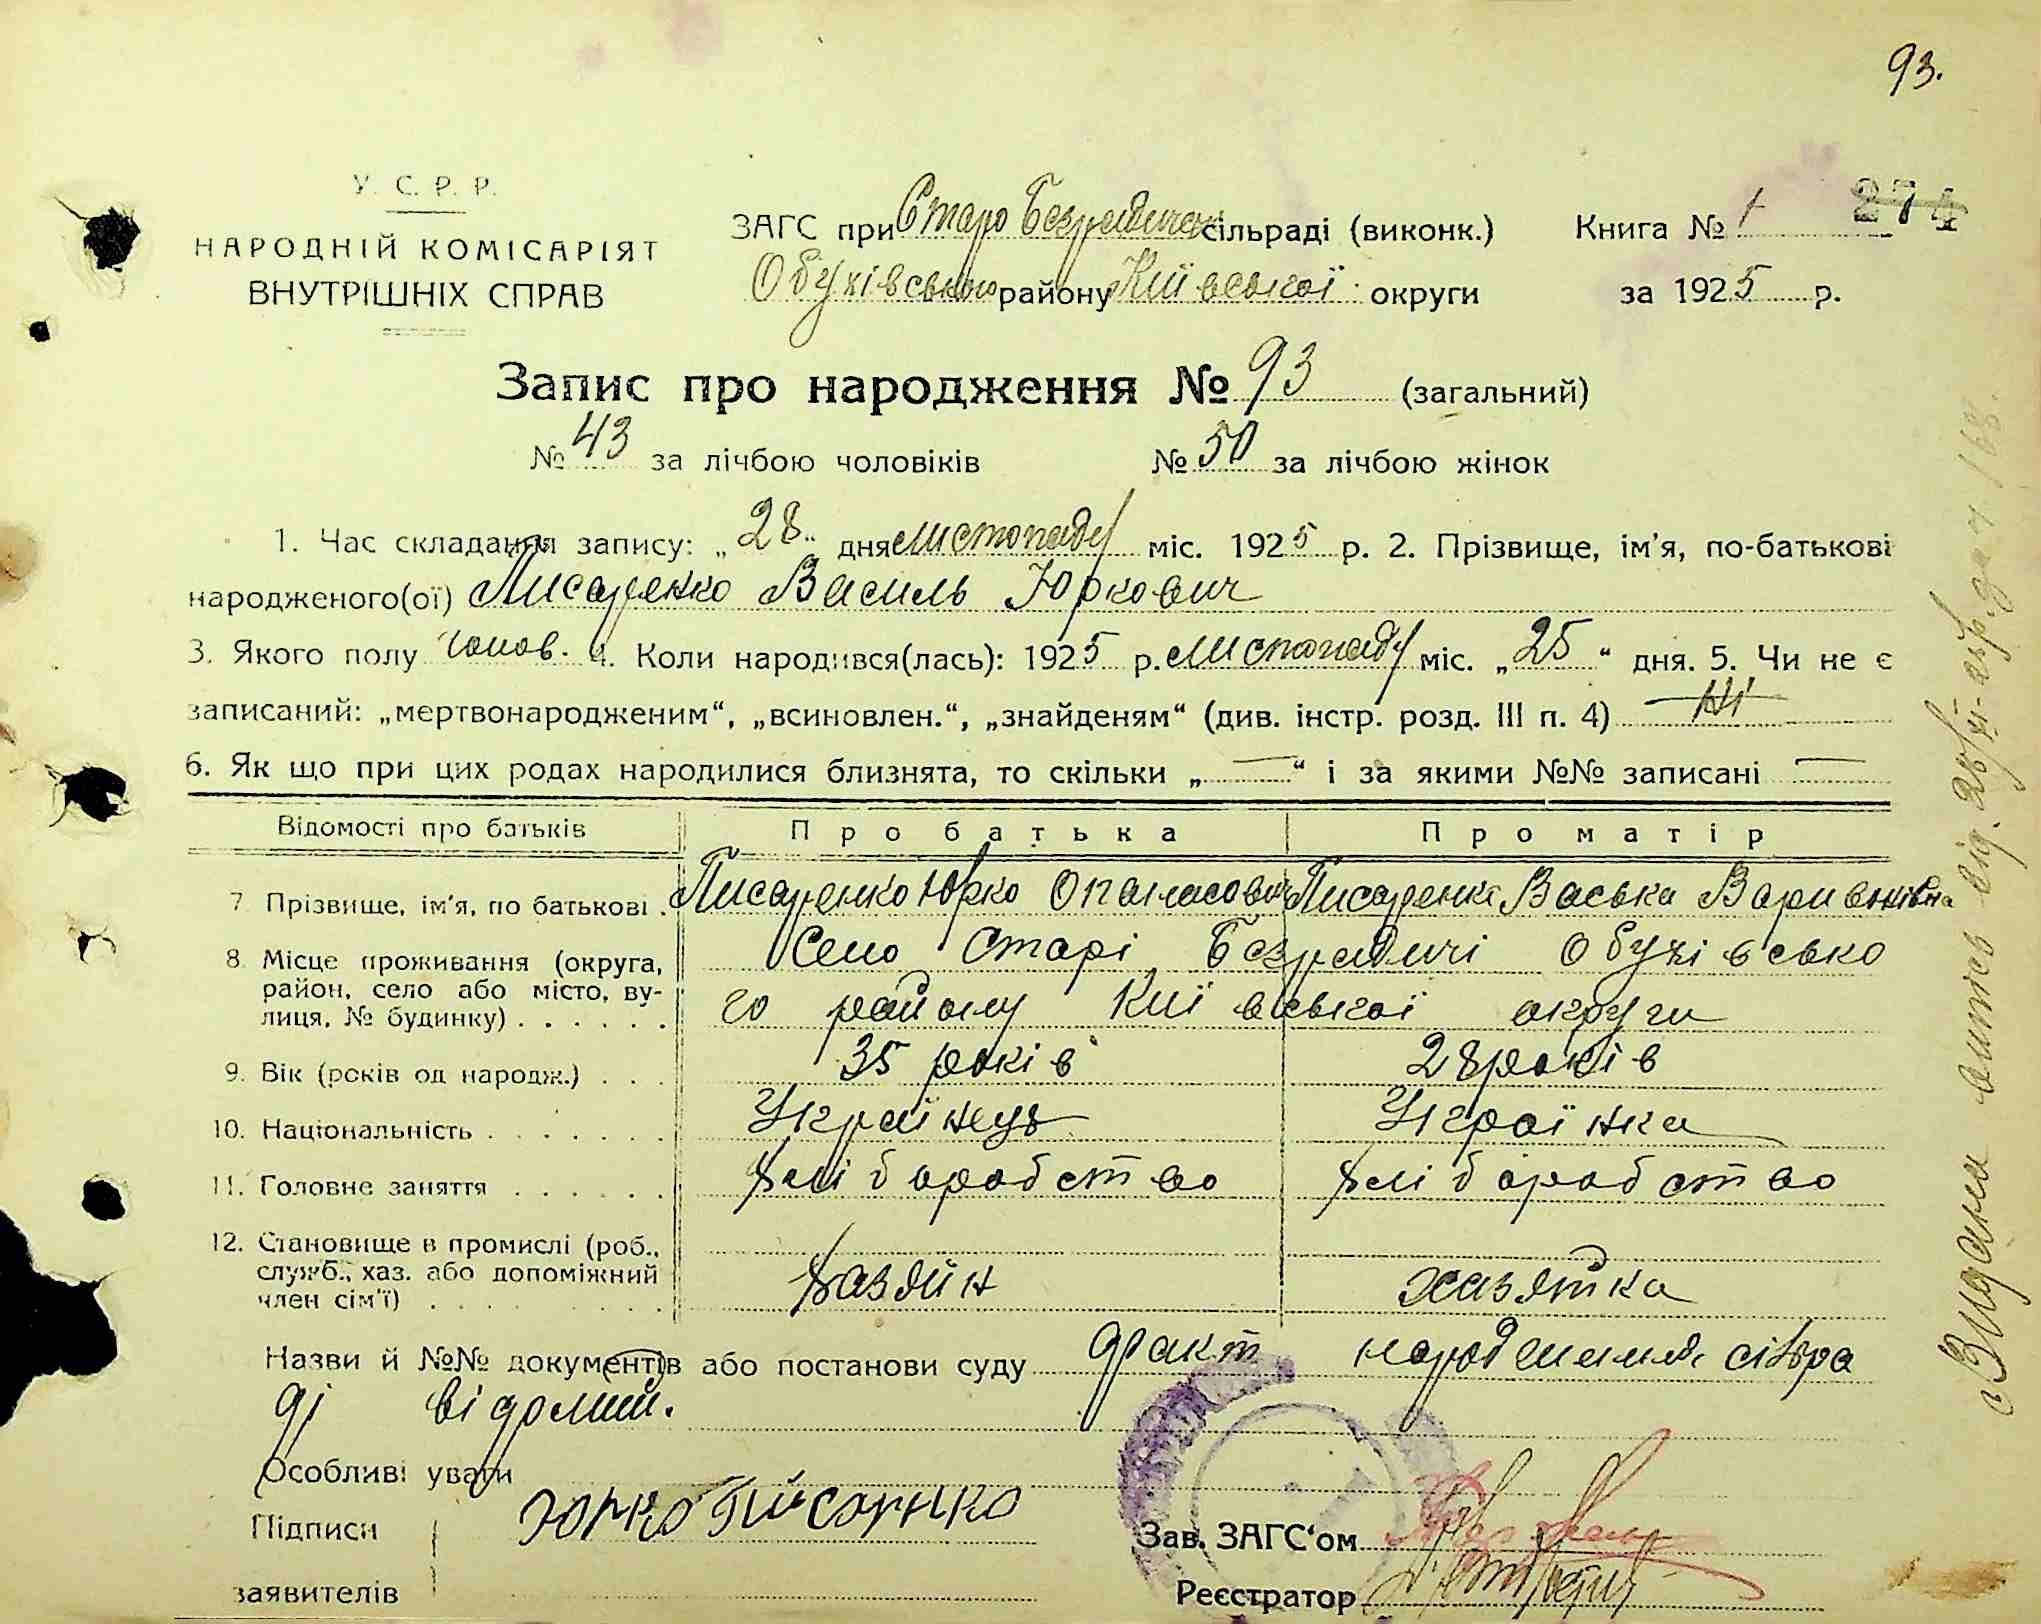 93.
У. С. Р. Р.
НАРОДНІЙ КОМІСАРІЯТ
ВНУТРІШНІХ СПРАВ
ЗАГС при Старо Безрадичах сільраді (виконк.)
Обухівського району Київської округи
Книга № 1 274
за 1925 р.
Запис про народження № 93 (загальний)
№ 43 за лічбою чоловіків № 50 за лічбою жінок
1. Час складання запису: „28" дня листопаду міс. 1925 р. 2. Прізвище, ім'я, по-батькові
народженого(ої) Писаренко Василь Юркович
3. Якого полу чолов. 4. Коли народився(лась): 1925 р. листопаду міс. „25" дня. 5. Чи не є
записаний: „мертвонародженим", „всиновлен.", „знайденям" (див. інстр. розд. III п. 4) — Ні —
6. Як що при цих родах народилися близнята, то скільки „—" і за якими №№ записані —
Відомості про батьків Про батька Про матір
7 Прізвище, ім'я, по батькові . Писаренко Юрко Опанасович Писаренко Васька Варивонівна
8. Місце проживання (округа, Село Старі Безрадичі Обухівсько
район, село або місто, ву-
лиця, № будинку) . . . . . . го району Київської округи
9. Вік (років од народж.) . . . 35 років 28 років
10. Національність . . . . . . . Українець Українка
11. Головне заняття . . . . . . Хліборобство Хліборобство
12. Становище в промислі (роб.,
служб., хаз. або допоміжний Хазяїн хазяйка
член сім'ї) . . . . . . . . .
Назви й №№ документів або постанови суду факт народження сільра
ді відомий.
Особливі уваги
Підписи Юрко Писаренко
заявителів
Зав. ЗАГС'ом
Реєстратор
Видани витяг від. 28/XI